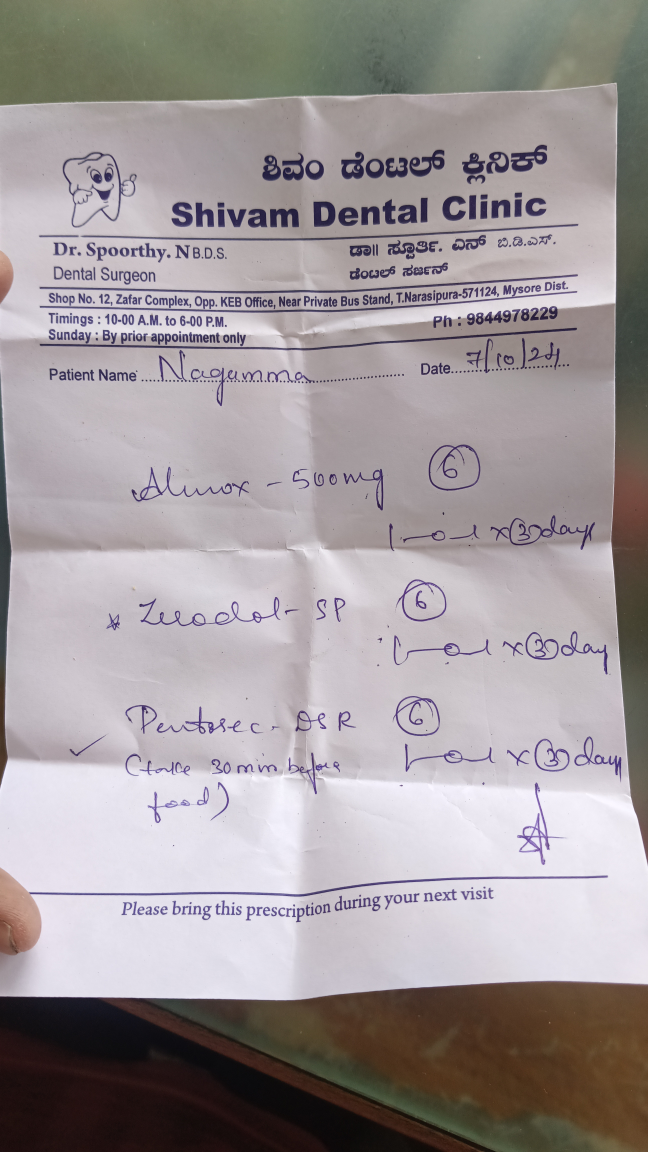 ಶಿವಂ ಡೆಂಟಲ್ ಕ್ಲಿನಿಕ್
Shivam Dental Clinic
Dr. Spoorthy. N B.D.S.
Dental Surgeon
ಡಾ|| ಸ್ಪೂರ್ತಿ. ಎನ್ ಬಿ.ಡಿ.ಎಸ್.
ಡೆಂಟಲ್ ಸರ್ಜನ್
Shop No. 12, Zafar Complex, Opp. KEB Office, Near Private Bus Stand, T.Narasipura-571124, Mysore Dist.
Timings : 10-00 A.M. to 6-00 P.M.
Sunday : By prior appointment only
Ph : 9844978229
Patient Name Nagamma Date 7/10/24
Almox - 500mg 6
1-0-1 x 3 days
* Zerodol - SP 6
1-0-1 x 3 day
Pentosec - DSR 6
1-0-1 x 3 day
(take 30 min before
food)
Please bring this prescription during your next visit